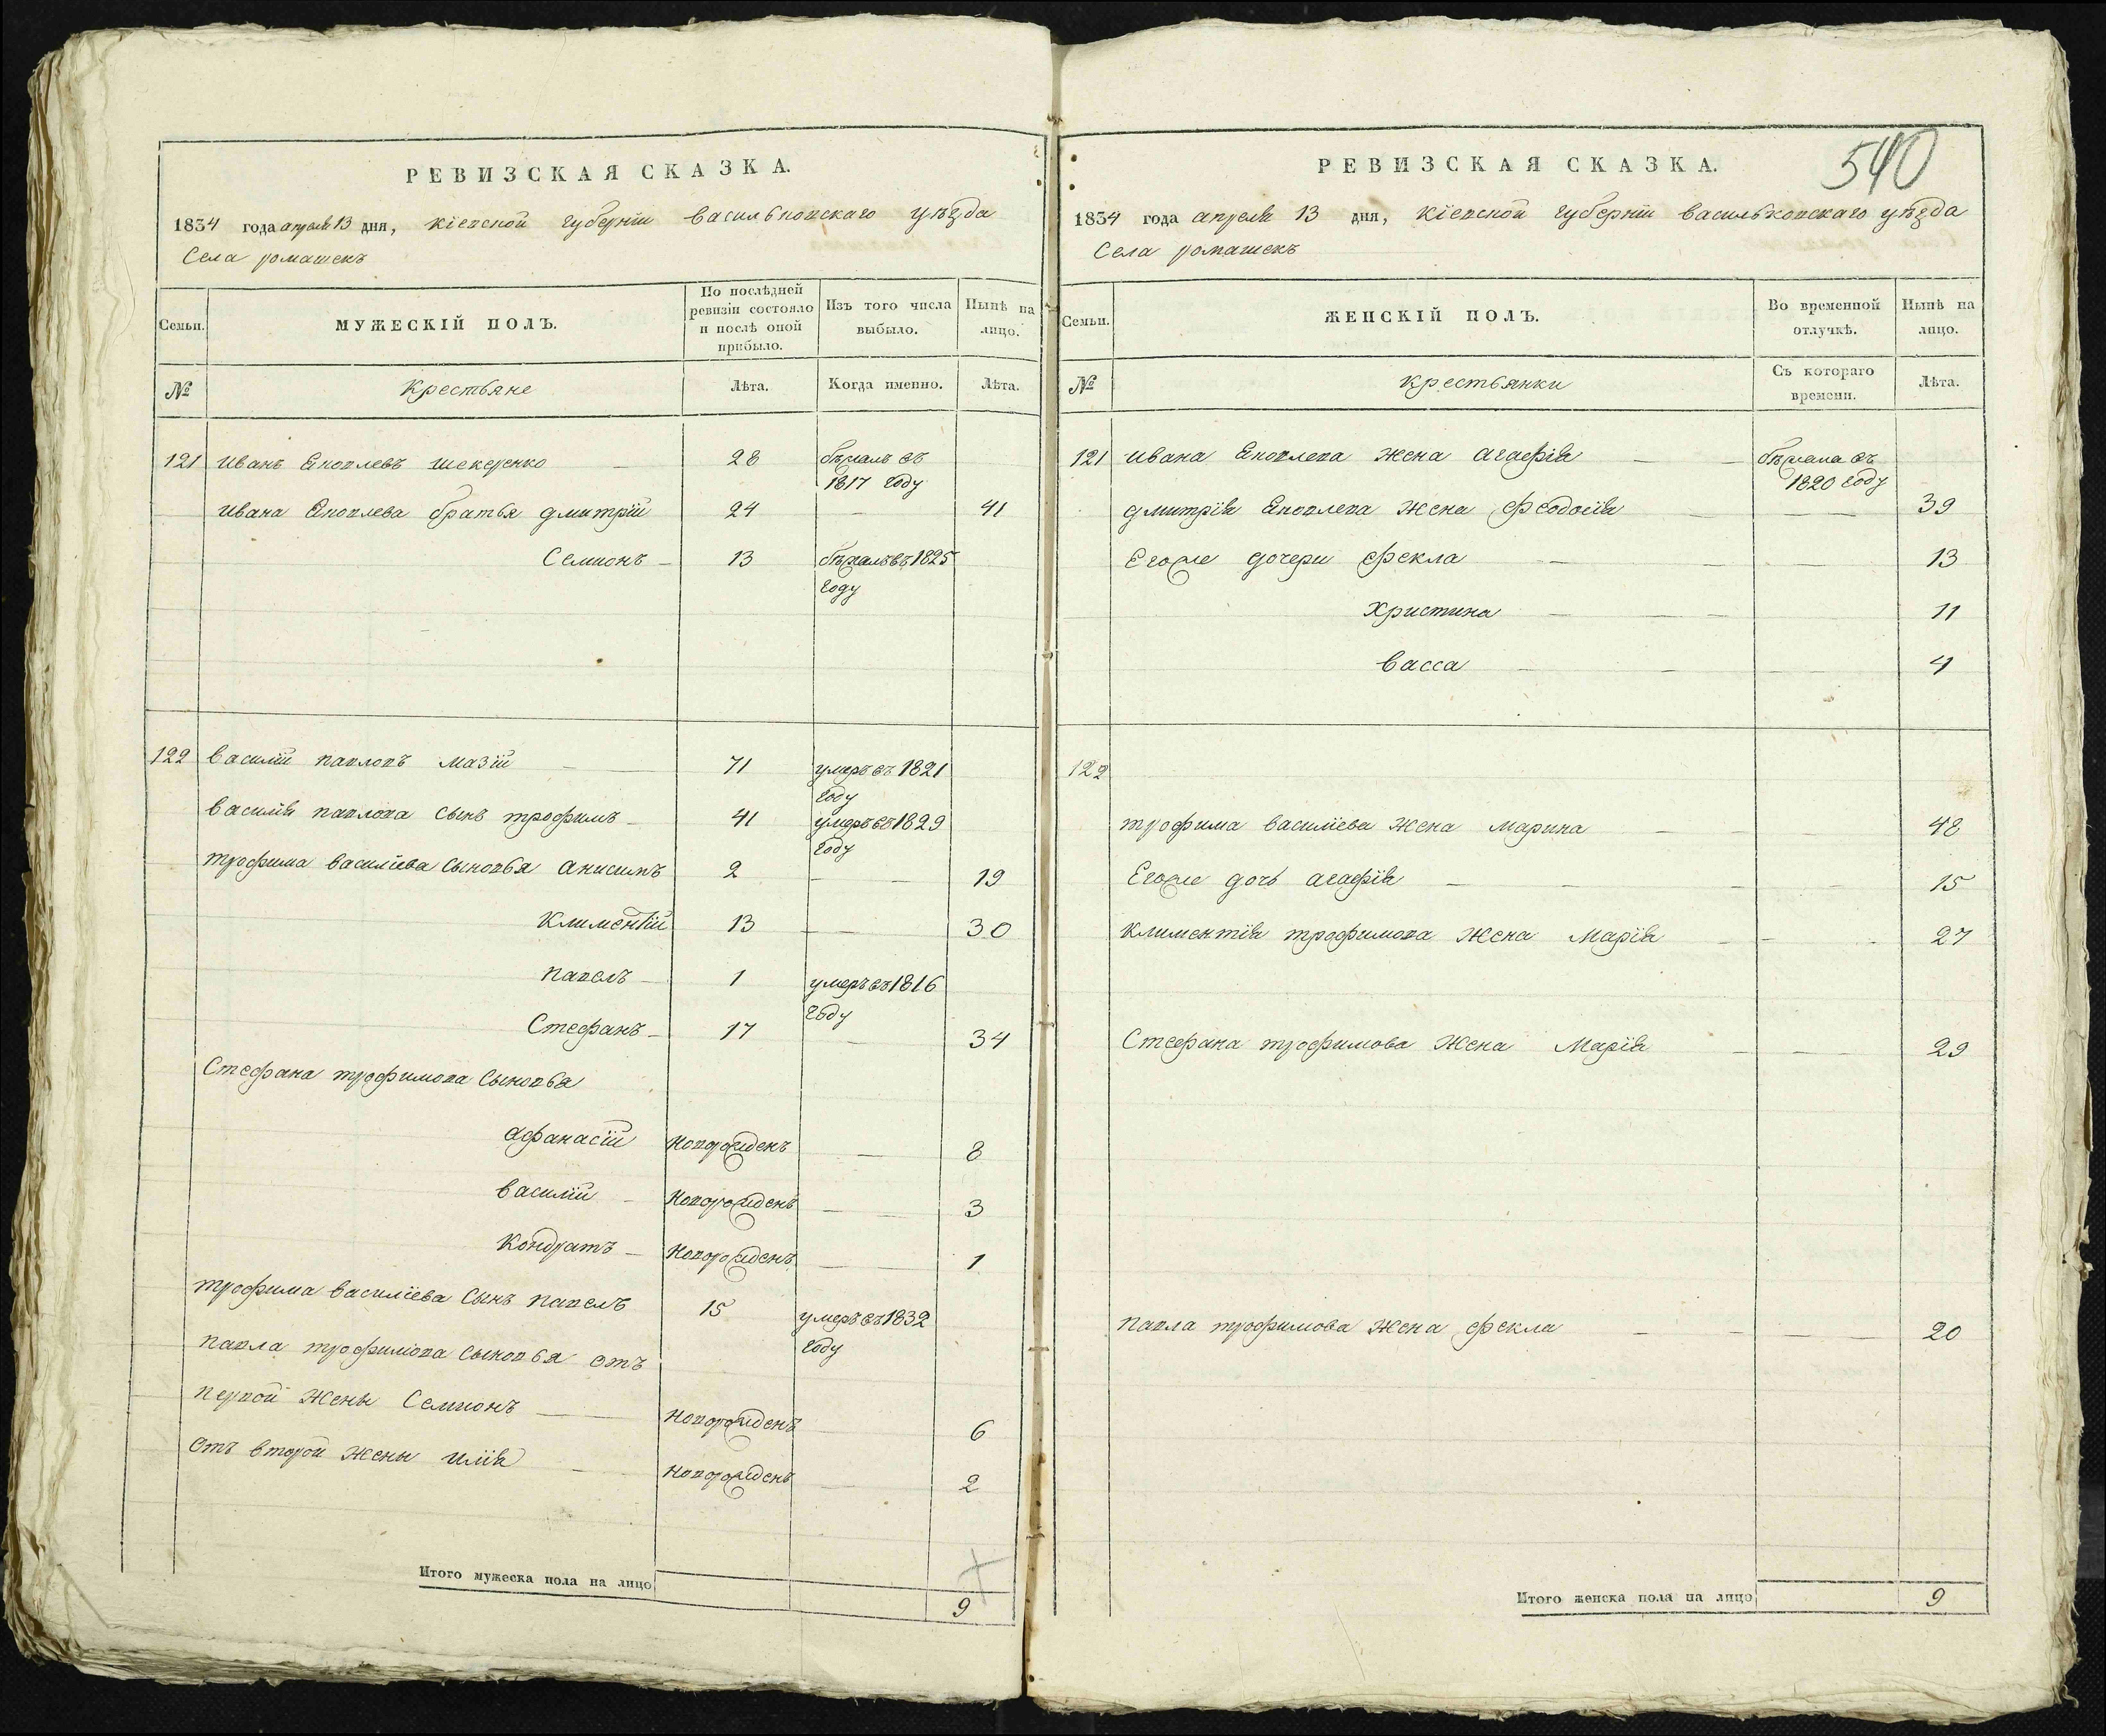 РЕВИЗСКАЯ СКАЗКА.
1834 года апреля 13 дня, Кіевской губерніи Васильковскаго уѣзда
Села ромашекъ
Семьи.
МУЖЕСКІЙ ПОЛЪ.
По послѣдней ревизіи состояло и послѣ оной прибыло.
Изъ того числа выбыло.
Нынѣ на лицо.
№
Крестьяне
Лѣта.
Когда именно.
Лѣта.
121 иванъ Яковлевъ шекеренко — 28 бѣжалъ въ
1817 году
ивана Яковлева братья дмитрій 24 — 41
Семионъ — 13 бѣжалъ въ 1825
году
122 василій павловъ мазій — 71 умеръ въ 1821
году
василія павлова сынъ трофимъ — 41 умеръ въ 1829
году
трофима василіева сыновья анисимъ 2 — — 19
Климентій 13 — — 30
павелъ — 1 умеръ въ 1816
году
Стефанъ — 17 — 34
Стефана трофимова сыновья
афанасій новорожденъ — 8
василій — новорожденъ — — 3
Кондратъ — новорожденъ — — 1
трофима василіева сынъ павелъ 15 умеръ въ 1832
году
павла трофимова сыновья отъ
первой жены Семионъ — новорожденъ — 6
отъ второй жены илія — новорожденъ — 2
Итого мужеска пола на лицо
9
540
РЕВИЗСКАЯ СКАЗКА.
1834 года апреля 13 дня, Кіевской губерніи васильковскаго уѣзда
Села ромашекъ
Семьи.
ЖЕНСКІЙ ПОЛЪ.
Во временной отлучкѣ.
Нынѣ на лицо.
№
Крестьянки
Съ котораго времени.
Лѣта.
121 ивана Яковлева жена агафія — — бѣжала въ
1820 году
дмитрія Яковлева жена феодосія — — — 39
Егоже дочери фекла — — — 13
Христина — — — 11
васса — — — 4
122
трофима василіева жена марина — — — 48
Егоже дочь агафія — — — — 15
Климентія трофимова жена марія — — - 27
Стефана трофимова жена марія — — — 29
павла трофимова жена фекла — — — — 20
Итого женска пола на лицо 9